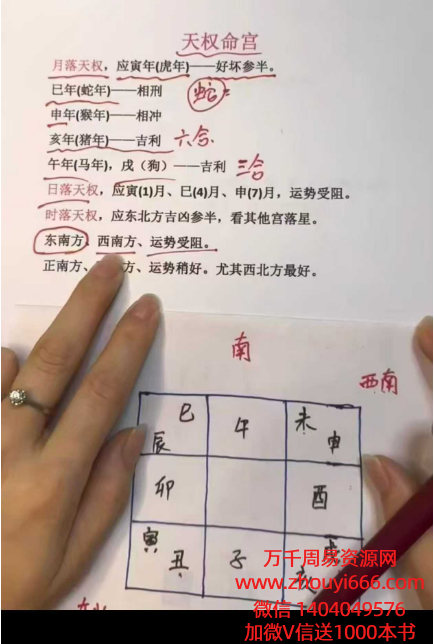 天权命宫
月落天权，应寅年(虎年)——好坏参半。
巳年(蛇年)——相刑
蛇
申年(猴年)——相冲
亥年(猪年)——吉利 六合
午年(马年)，戌（狗）——吉利 三合
日落天权，应寅(1)月、巳(4)月、申(7)月，运势受阻。
时落天权，应东北方吉凶参半，看其他宫落星。
东南方、西南方、运势受阻。
正南方、方、运势稍好。尤其西北方最好。
南
西南
巳 午 未
辰 申
卯 酉
寅 丑 子
万千周易资源网
www.zhouyi666.com
微信 1404049576
加微V信送1000本书